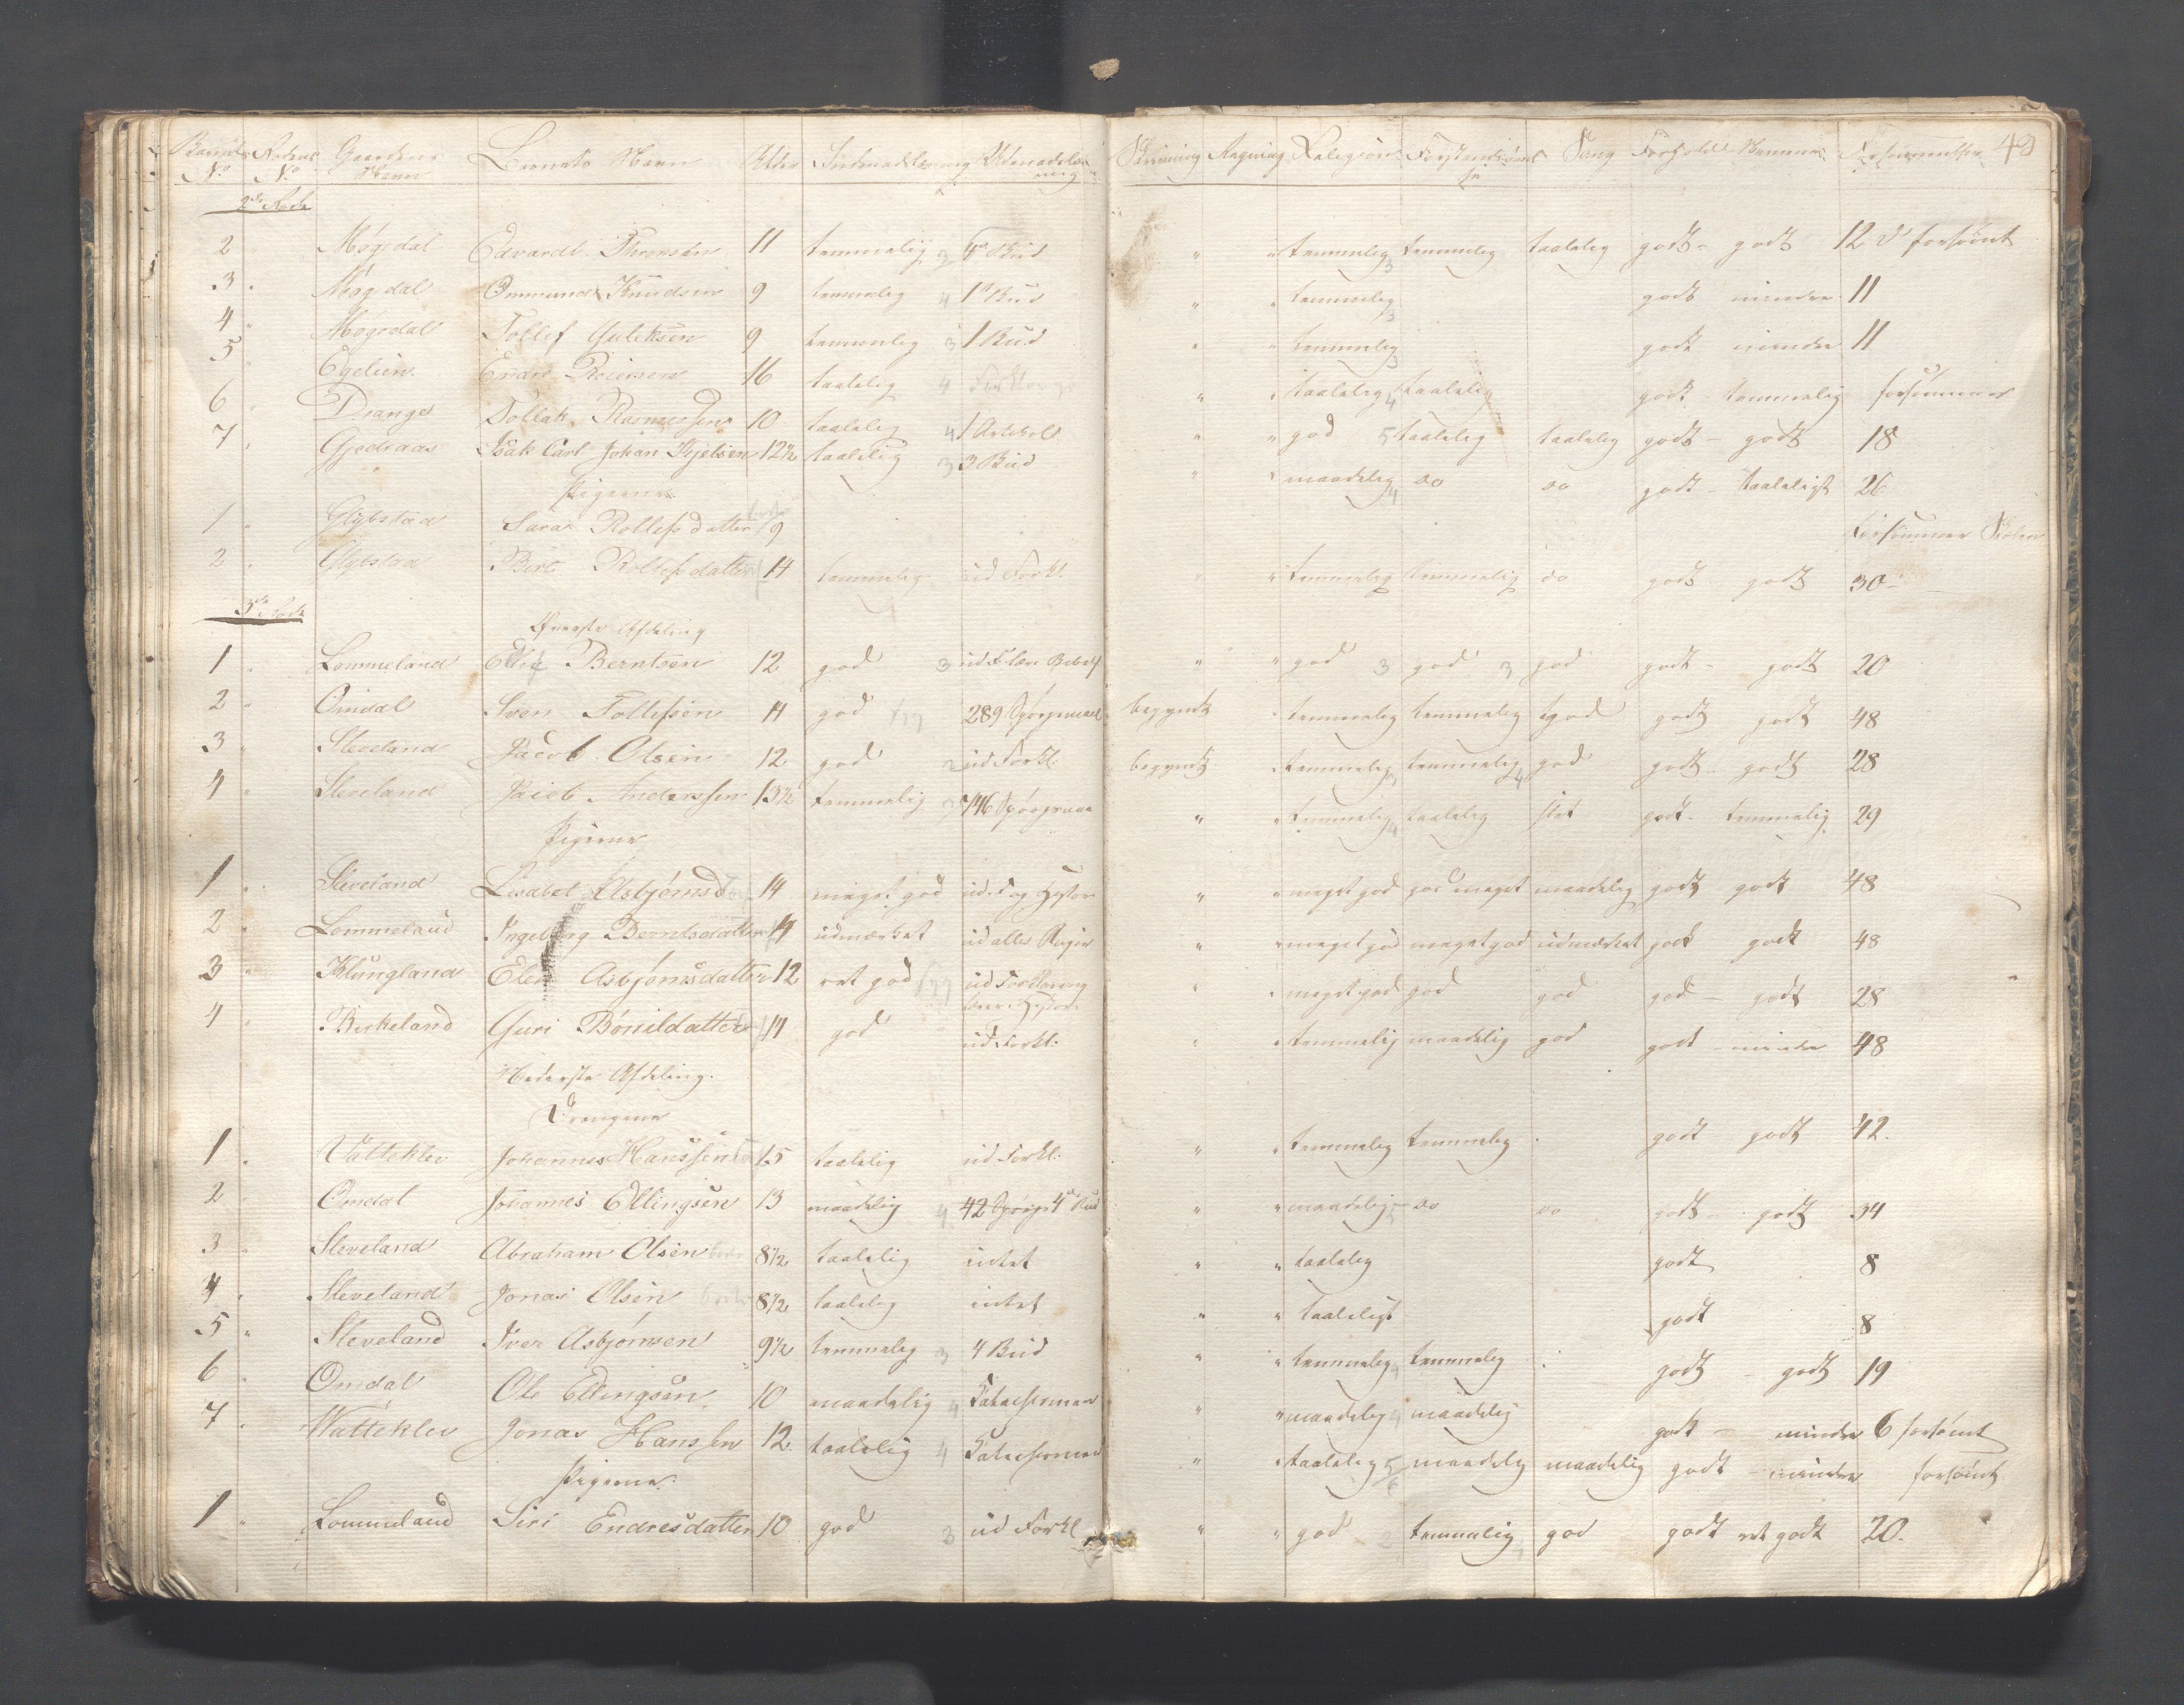 Barnets No Rodens No Gaardens Navn Barnets Navn Alder Indenadslæsning Udenadslæsning Skrivning Regning Religion Forstandsøvelse Sang Forhold Nemme Forsømmelser 43
2den Rode
2 " Møgedal Edvardt Thronsen 11 temmelig 3 4de Bud " " temmelig 3 temmelig taalelig godt - godt 12 forsømt
3 " Møgedal Ommund Knudsen 9 temmelig 4 1ste Bud " " temmelig 3 godt mindre 11
4 " Møgedal Tollef Guleksen 9 temmelig 3 1 Bud " " temmelig 3 godt mindre 11
5 " Egelien Endre Reiersen 16 taalelig 4 " " taalelig 4 taalelig godt temmelig forsømmer
6 " Drange Tollak Rasmussen 10 taalelig 4 1 Artikel " " god 5 taalelig taalelig godt - godt 18
7 " Gjedraas Isak Carl Johan Kjelsen 12 1/2 taalelig 3 3 Bud " " maadelig 4 do do godt - taaleligt 26
Pigerne
1 " Glybstad Sara Rollefsdatter 9 Forsømmer Skolen
2 " Glybstad Berte Rollefsdatter 14 temmelig ud Forkl. " " temmelig temmelig do godt godt 30
3de Rode
Øverste Afdeling
1 " Lommeland Ellef Berntsen 12 god 3 ud F. lærer Bibelh " " god 3 god 3 god godt - godt 20
2 " Omdal Sven Tollefsen 14 god 289 Spørgsmaal begyndt " temmelig temmelig god godt godt 48
3 " Sleveland Jacob Olsen 12 god 2 ud Forkl. begyndt " temmelig temmelig 4 god godt godt 28
4 " Sleveland Jacob Anderssen 13 1/2 temmelig 746 Spørgsmaa " " temmelig 4 taalelig slet godt temmelig 29
Pigerne
1 " Sleveland Lisabet Asbjørnsd 14 meget god ud F og Hystor " " meget god god meget maadelig godt godt 48
2 " Lommeland Ingeborg Berntsdatter 14 udmærket ud alle Bøger " " meget god meget god udmærket godt godt 48
3 " Klungland Elen Asbjørnsdatter 12 ret god ud Forklaring lærer Hystor. " " meget god god god god - godt 28
4 " Birkeland Guri Bønildatter 14 god ud Forkl: " " temmelig maadelig god godt - mindre 48
Nederste Afdeling.
Drengene
1 " Vattekler Johannes Hanssen 15 taalelig ud Forkl: " " temmelig temmelig " godt godt 42.
2 " Omdal Johannes Ellingsen 13 maadelig 4 42 Spørgs 4de Bud " " maadelig 5 do do godt - godt 34
3 " Sleveland Abraham Olsen 8 1/2 taalelig intet " " taalelig godt 8
4 " Sleveland Jonas Olsen 8 1/2 taalelig intet " " taaleligt godt 8
5 " Sleveland Iver Asbjørnsen 9 1/2 temmelig 3 4 Bud " " temmelig 4 temmelig " godt - godt 19
6 " Omdal Ole Ellingsen 10 maadelig 4 " " maadelig 4 maadelig godt - mindre 6 forsømt
7 " Wattekler Jonas Hanssen 12 taalelig 4 " " taalelig 5 maadelig maadelig godt - mindre forsømt
Pigerne:
1 " Lommeland Siri Endresdatter 10 god 3 ud Forkl " " god 2 temmelig god godt ret godt 20.